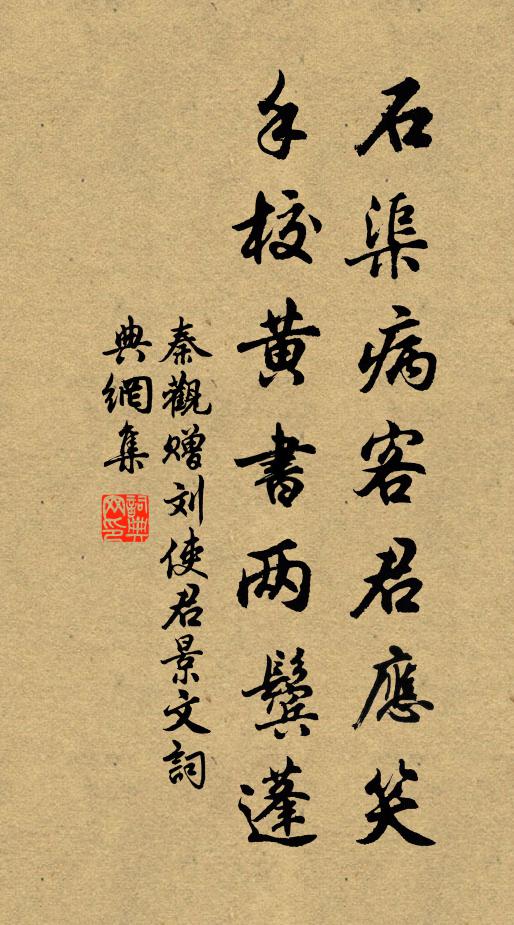 石渠病客君應笑
手校黄書两鬓蓬
秦觀赠刘使君景文詞
典網集
詞典网印